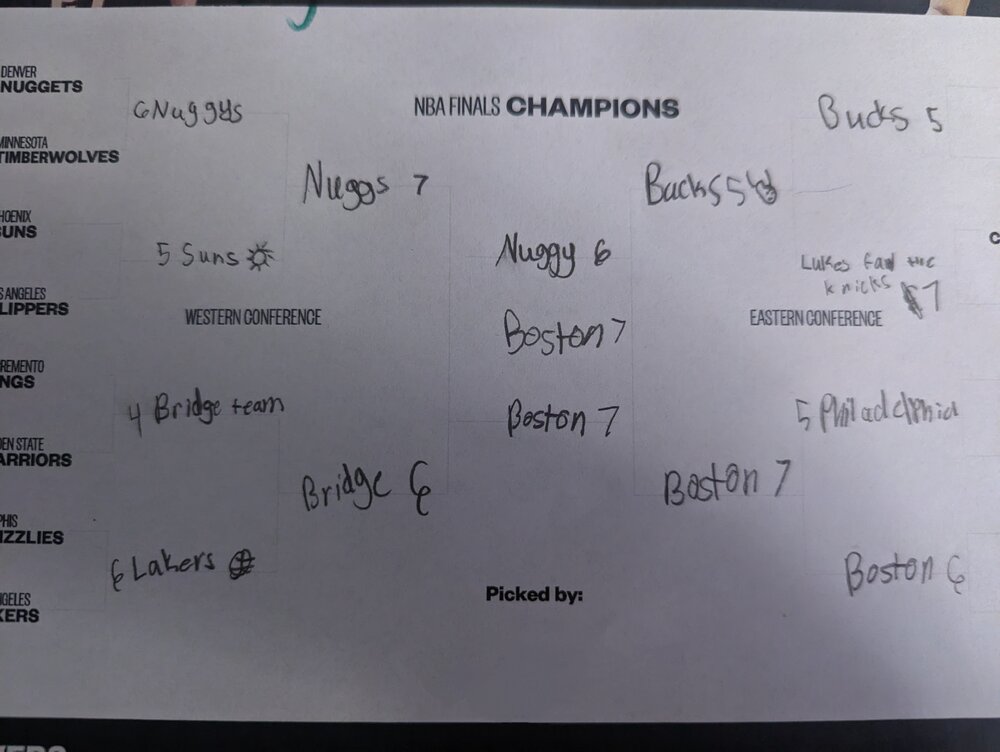 DENVER
NUGGETS
MINNESOTA
TIMBERWOLVES
HOENIX
UNS
S ANGELES
LIPPERS
REMENTO
NGS
EN STATE
ARRIORS
PHIS
IZZLIES
NGELES
KERS
6 Nuggys
5 Suns
4 Bridge team
6 Lakers
Nuggs 7
WESTERN CONFERENCE
Bridge 6
NBA FINALS CHAMPIONS
Nuggy 6
Boston 7
Boston 7
Picked by:
Bucks 5
EASTERN CONFERENCE
Boston 7
Bucks 5
knicks 7
5 Philadelphia
Boston 6